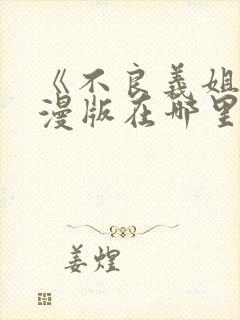 《不良義姐
漫版在哪里
姜煌